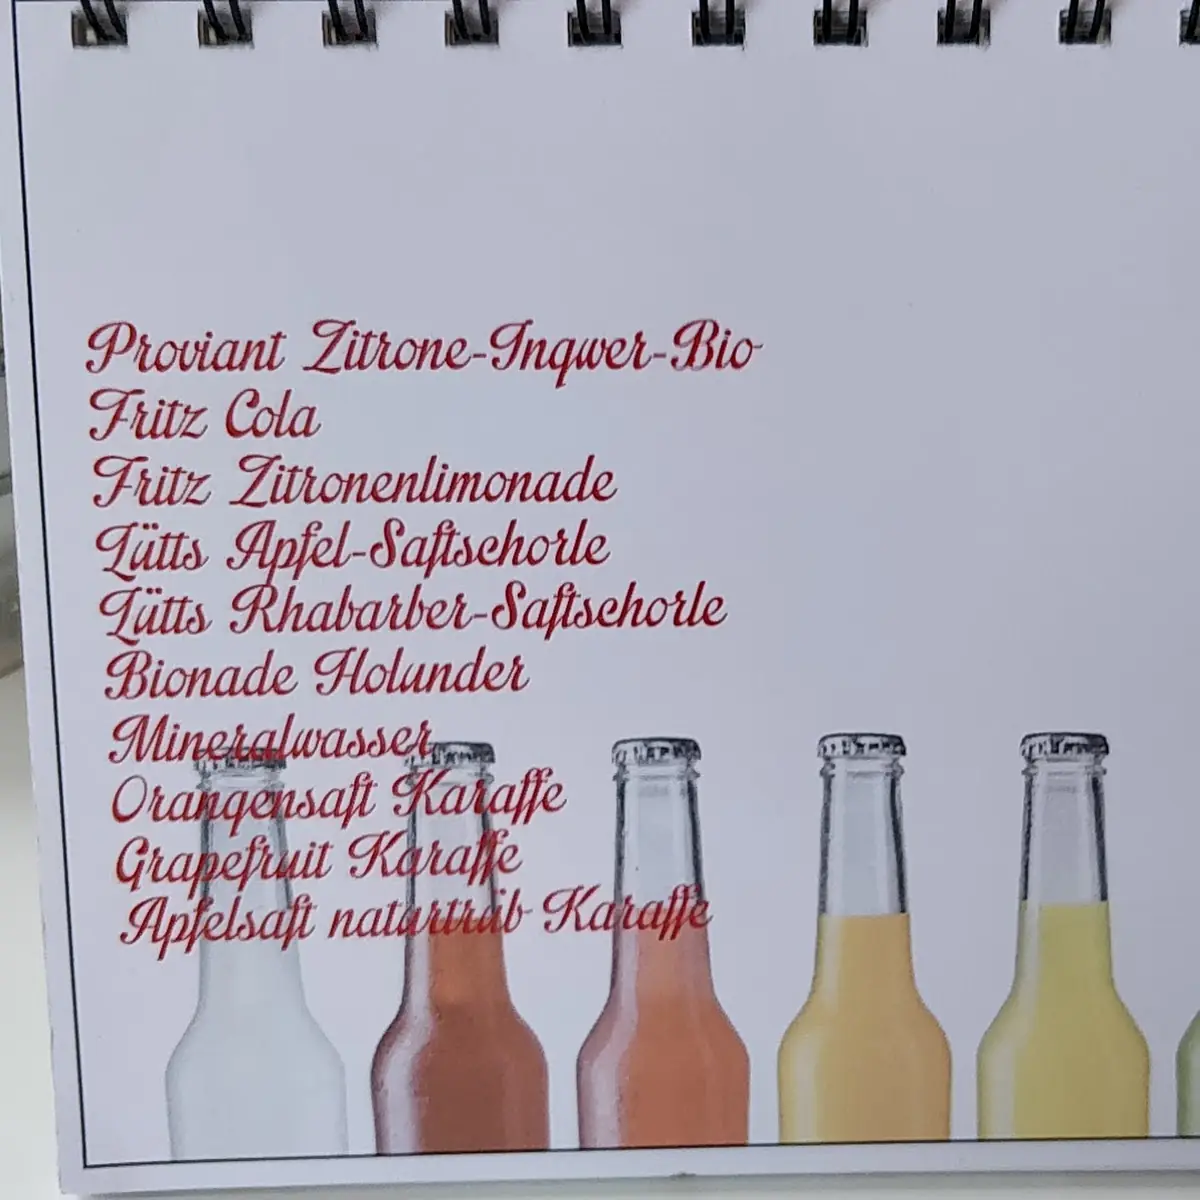 Proviant Zitrone-Ingwer-Bio
Fritz Cola
Fritz Zitronenlimonade
Lütts Apfel-Saftschorle
Lütts Rhabarber-Saftschorle
Bionade Holunder
Mineralwasser
Orangensaft Karaffe
Grapefruit Karaffe
Apfelsaft naturtrüb Karaffe